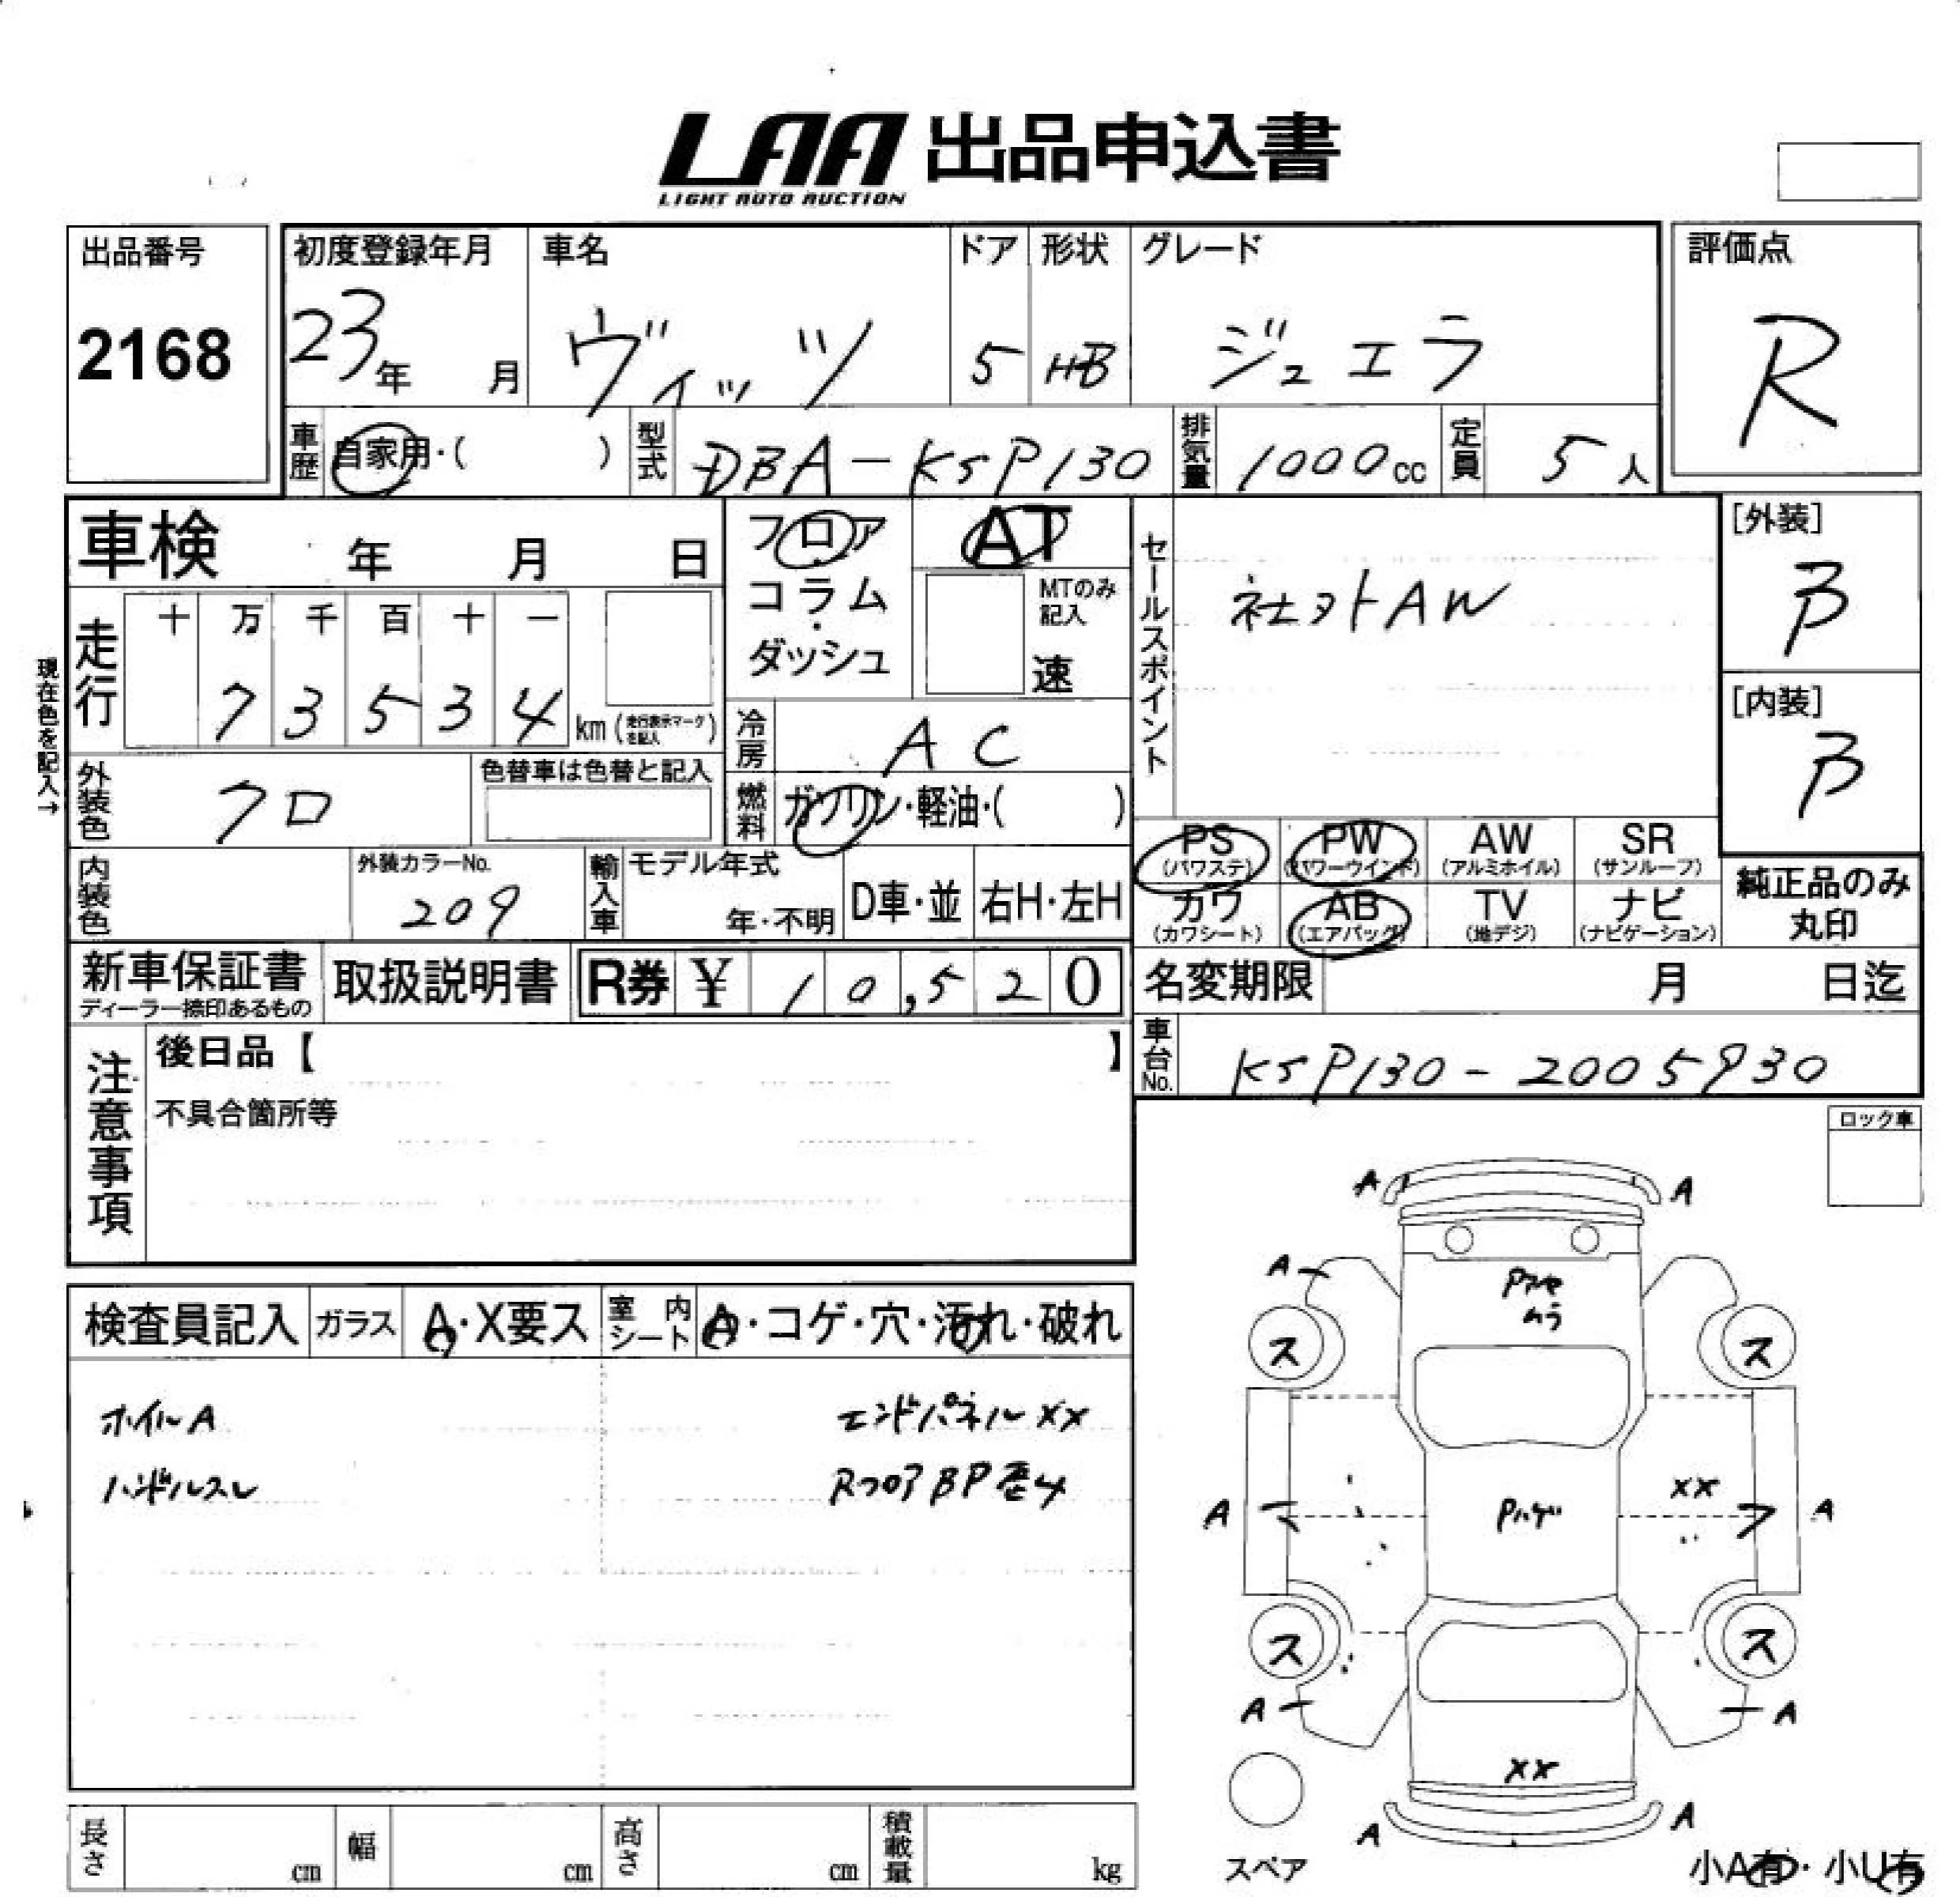 LAA 出品申込書
LIGHT AUTO AUCTION
出品番号
2168
初度登録年月
23年 月
車名
ヴィッツ
ドア
5
形状
HB
グレード
ジュエラ
評価点
R
車歴 自家用・( )
型式 DBA-KSP130
排気量 1000cc
定員 5人
車検 年 月 日
フロア・コラム・ダッシュ
AT
MTのみ記入
速
セールスポイント
社外AW
[外装]
B
[内装]
B
現在色を記入→
走行
十 万 千 百 十 一
7 3 5 3 4 km (走行表示マークを記入)
冷房 AC
外装色 クロ
色替車は色替と記入
燃料 ガソリン・軽油・( )
内装色
外装カラーNo.
209
輸入車 モデル年式
年・不明
D車・並
右H・左H
PS (パワステ)
PW (パワーウインド)
AW (アルミホイル)
SR (サンルーフ)
カワ (カワシート)
AB (エアバッグ)
TV (地デジ)
ナビ (ナビゲーション)
純正品のみ
丸印
新車保証書
ディーラー捺印あるもの
取扱説明書
R券 ¥ 10,520
名変期限 月 日迄
車台No. KSP130-2005930
注意事項
後日品【 】
不具合箇所等
ロック車
検査員記入
ガラス A・X要ス
室内シート A・コゲ・穴・汚れ・破れ
ホイルA
ハンドルスレ
エンドパネルXX
RフロアBP歪4
A A
A
Pアセ
ムラ
ス ス
A
XX
Pハゲ
A
ス ス
A A
XX
A A
スペア
小A有・小U有
長さ cm
幅 cm
高さ cm
積載量 kg